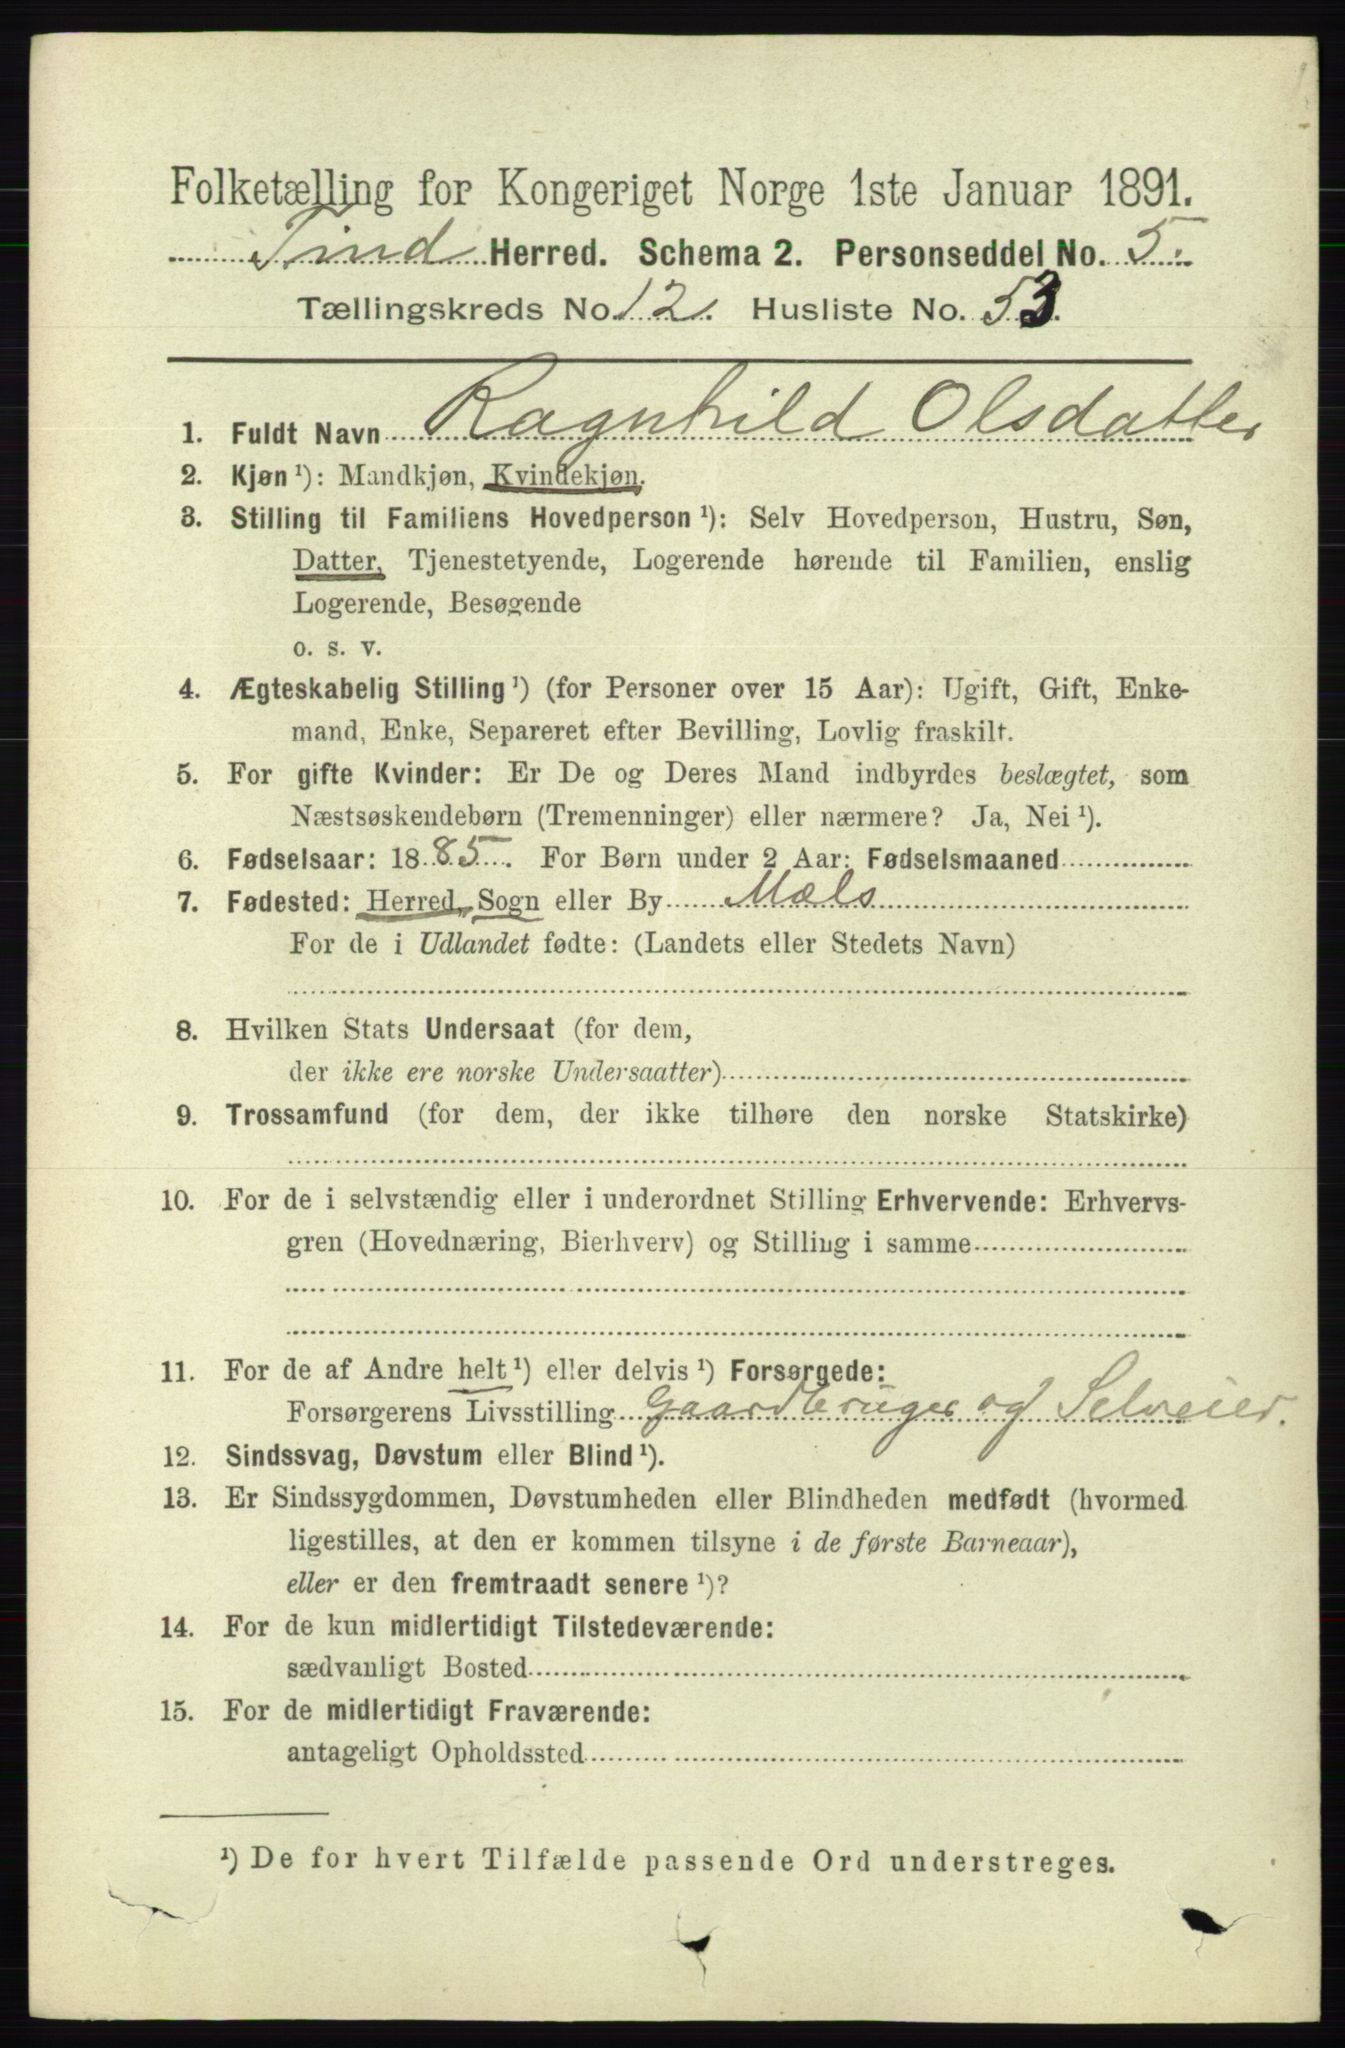 Folketælling for Kongeriget Norge 1ste Januar 1891.
Tind Herred. Schema 2. Personseddel No. 5.
Tællingskreds No. 12. Husliste No. 53.
1. Fuldt Navn Ragnhild Olsdatter
2. Kjøn ¹): Mandkjøn, Kvindekjøn.
3. Stilling til Familiens Hovedperson ¹): Selv Hovedperson, Hustru, Søn,
Datter, Tjenestetyende, Logerende hørende til Familien, enslig
Logerende, Besøgende
o. s. v.
4. Ægteskabelig Stilling ¹) (for Personer over 15 Aar): Ugift, Gift, Enke-
mand, Enke, Separeret efter Bevilling, Lovlig fraskilt.
5. For gifte Kvinder: Er De og Deres Mand indbyrdes beslægtet, som
Næstsøskendebørn (Tremenninger) eller nærmere? Ja, Nei ¹).
6. Fødselsaar: 1885. For Børn under 2 Aar: Fødselsmaaned
7. Fødested: Herred, Sogn eller By Mæls
For de i Udlandet fødte: (Landets eller Stedets Navn)
8. Hvilken Stats Undersaat (for dem,
der ikke ere norske Undersaatter)
9. Trossamfund (for dem, der ikke tilhøre den norske Statskirke)
10. For de i selvstændig eller i underordnet Stilling Erhvervende: Erhvervs-
gren (Hovednæring, Bierhverv) og Stilling i samme
11. For de af Andre helt ¹) eller delvis ¹) Forsørgede:
Forsørgerens Livsstilling Gaardbruger og Selveier.
12. Sindssvag, Døvstum eller Blind ¹).
13. Er Sindssygdommen, Døvstumheden eller Blindheden medfødt (hvormed
ligestilles, at den er kommen tilsyne i de første Barneaar),
eller er den fremtraadt senere ¹)?
14. For de kun midlertidigt Tilstedeværende:
sædvanligt Bosted
15. For de midlertidigt Fraværende:
antageligt Opholdssted
¹) De for hvert Tilfælde passende Ord understreges.